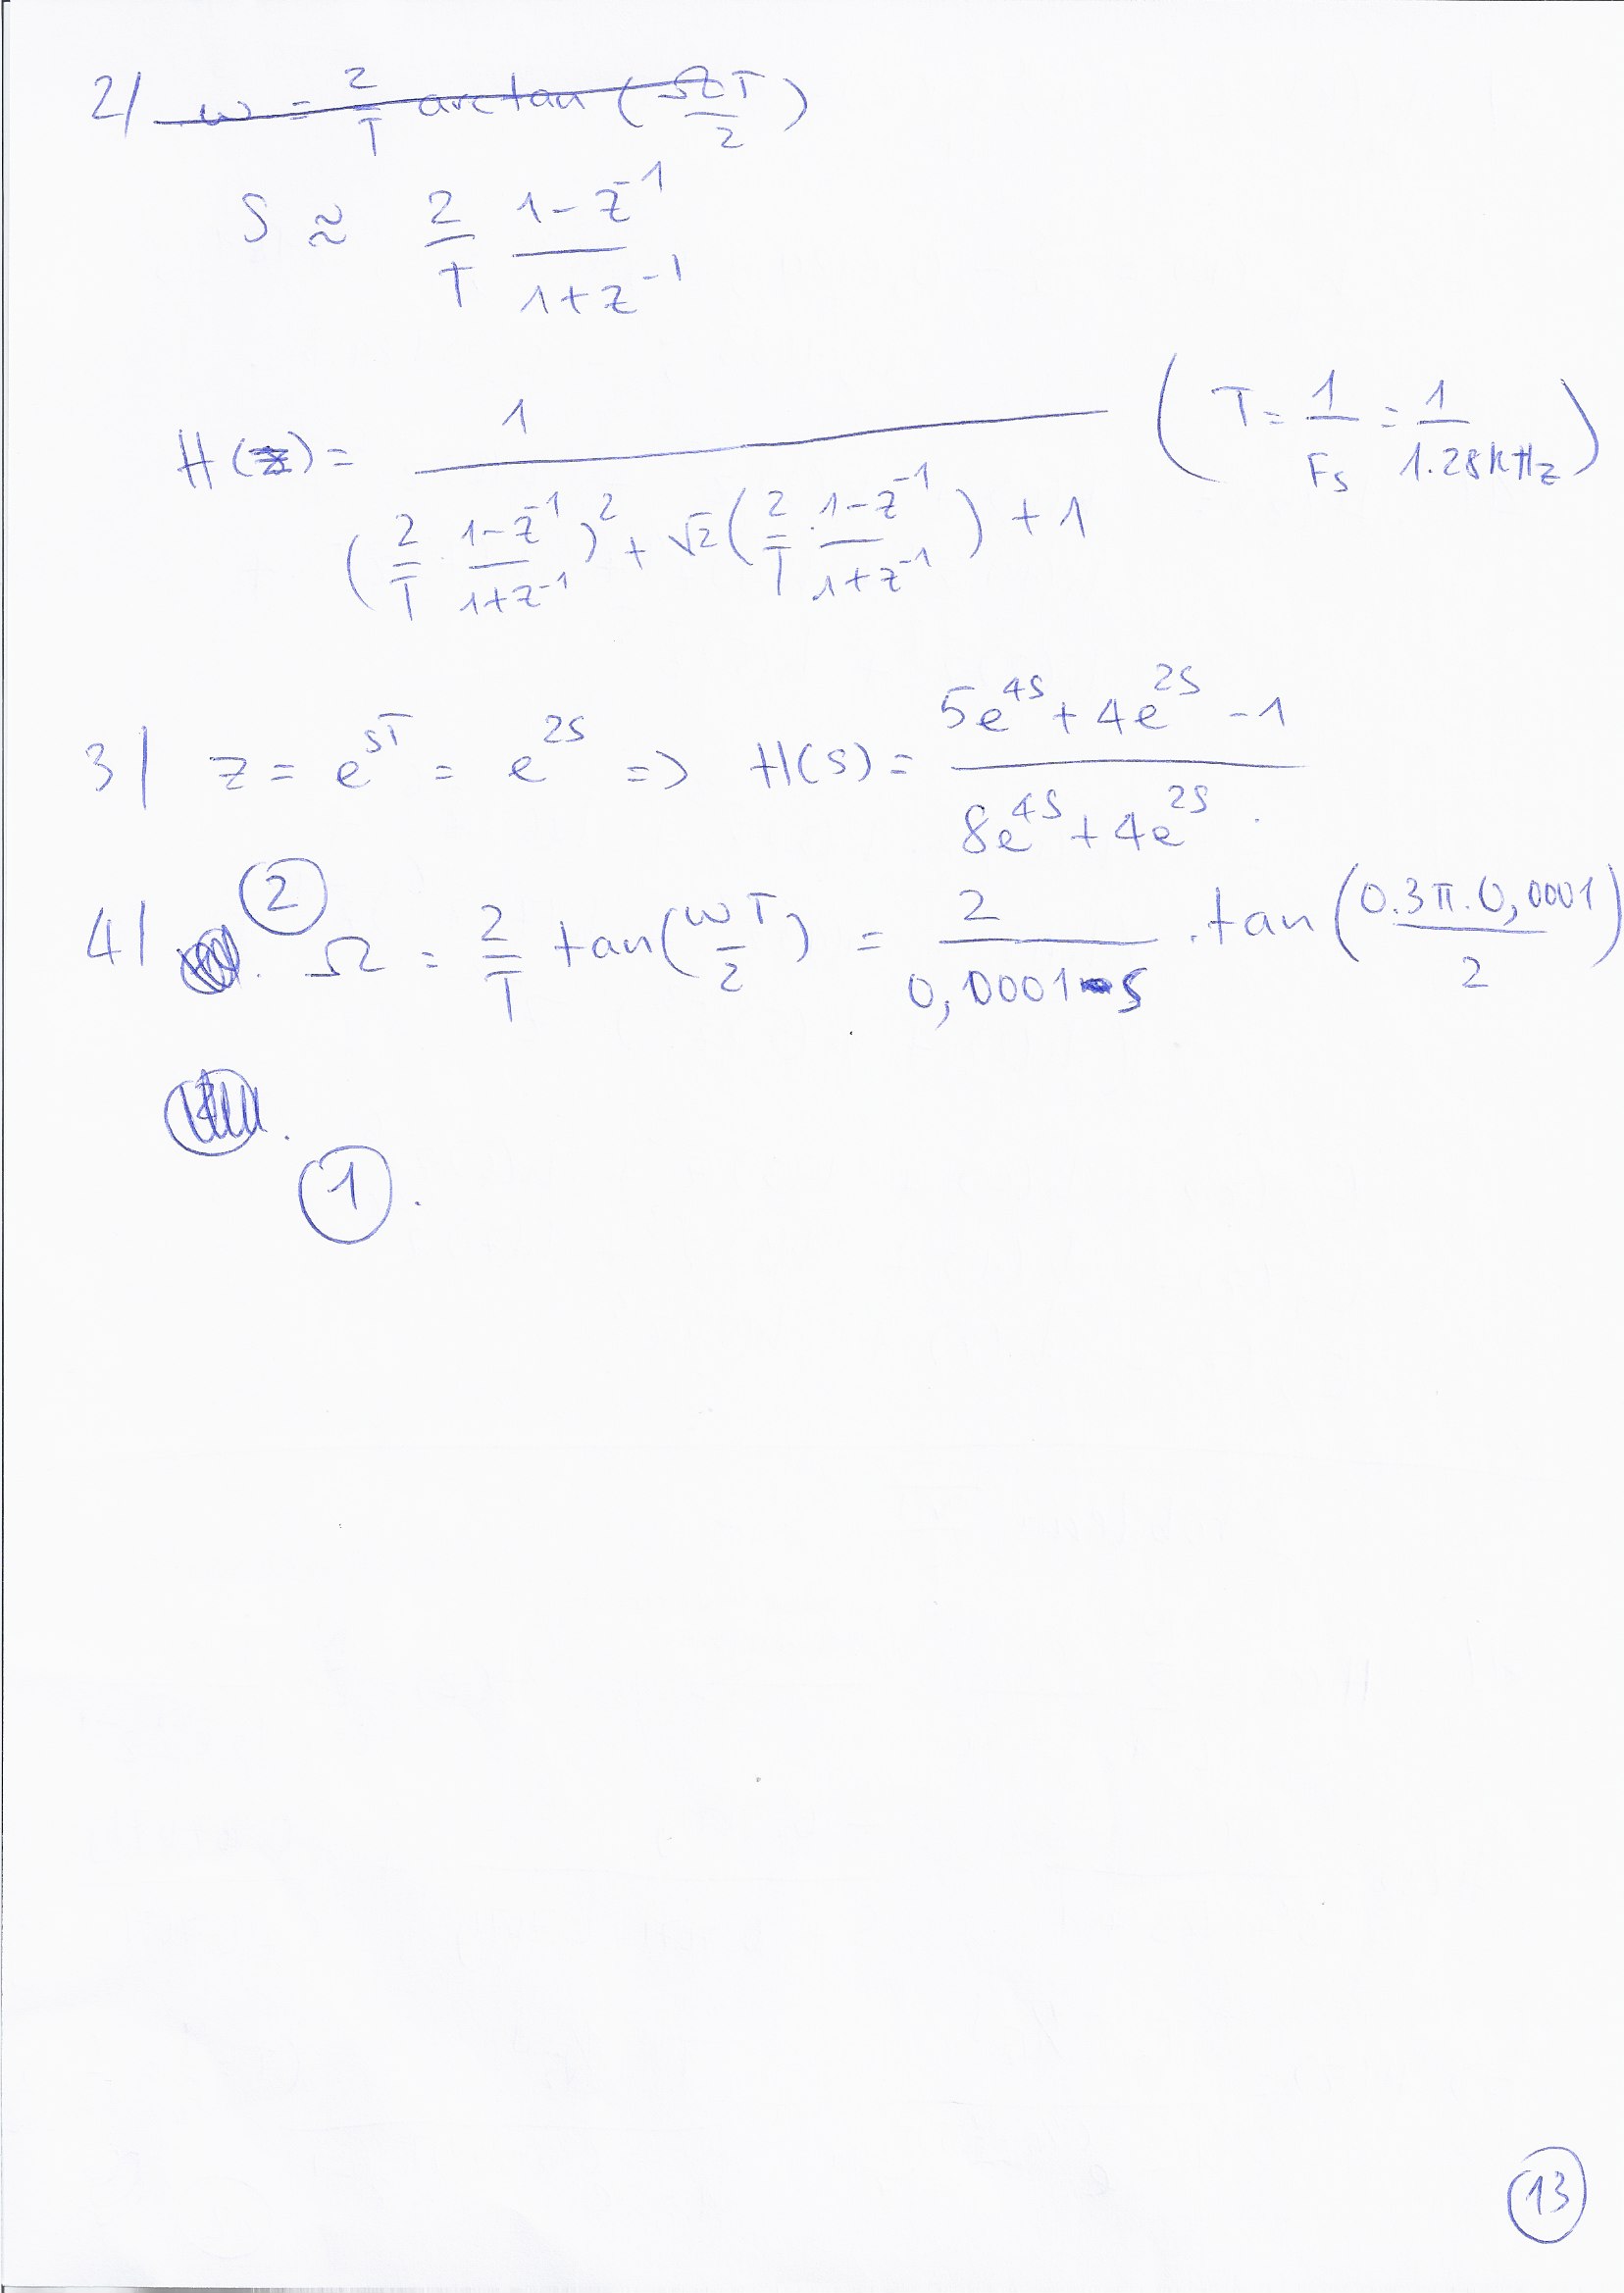 2/ ω = 2/T arctan (ΩT/2)
S ≈ 2/T (1-z⁻¹)/(1+z⁻¹)
H(z) = 1/((2/T · (1-z⁻¹)/(1+z⁻¹))² + √2(2/T · (1-z⁻¹)/(1+z⁻¹)) + 1) (T = 1/Fs = 1/1.28kHz)
3/ z = e^sT = e^2s => H(s) = (5e^4s + 4e^2s - 1)/(8e^4s + 4e^2s).
4/ ② . Ω = 2/T tan(ωT/2) = 2/0,0001s . tan(0.3π.0,0001/2)
① .
⑬